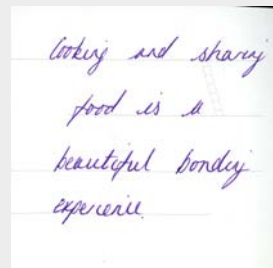 Cooking and sharing
food is a
beautiful bonding
experience